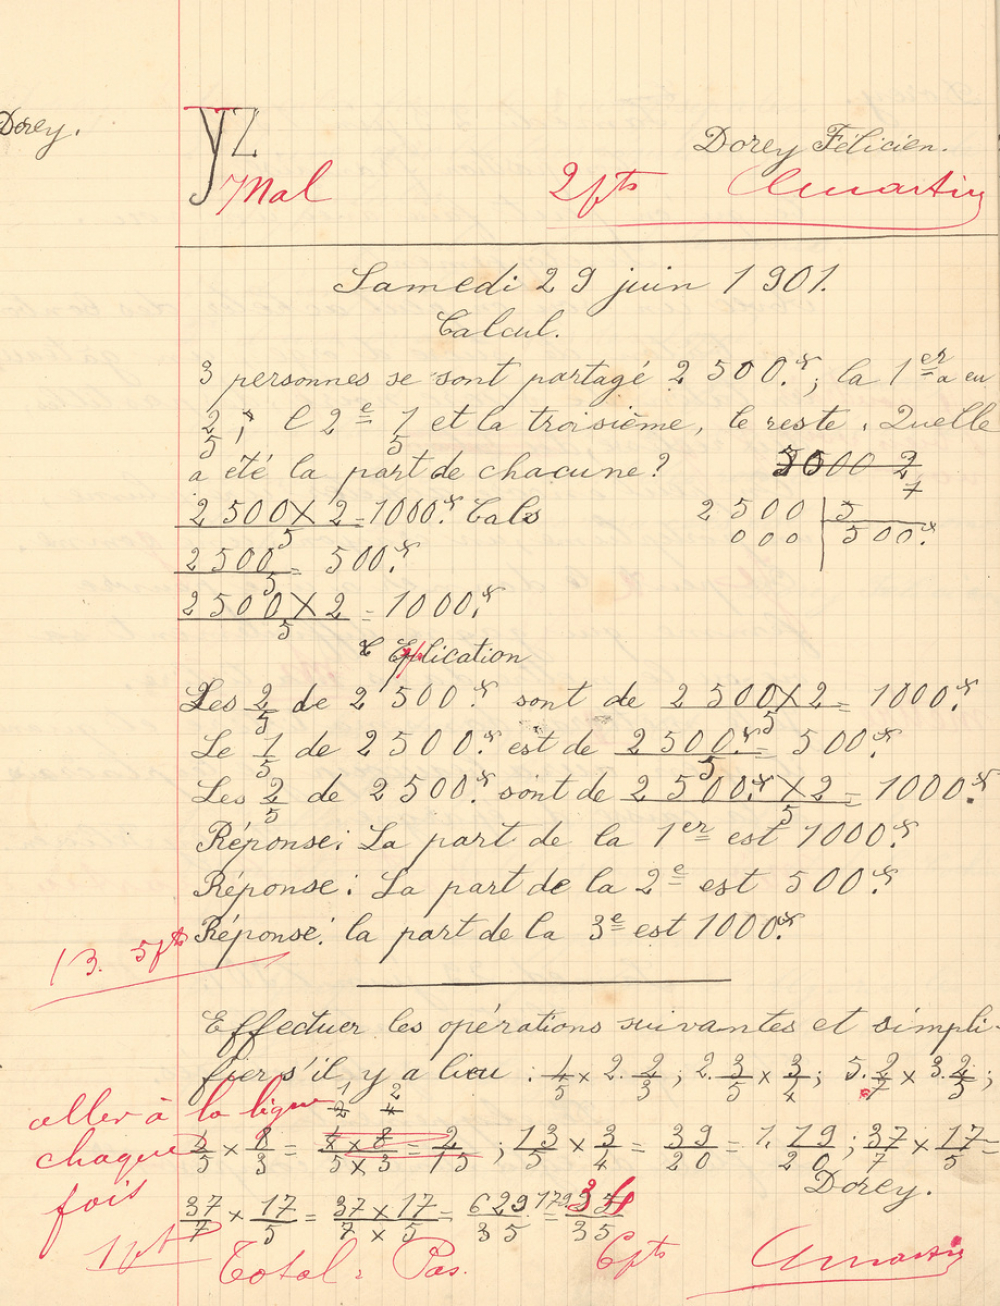 Dorey.
yz
Dorey Félicien.
Mal 2 pts Amartin
Samedi 29 juin 1901.
Calcul.
3 personnes se sont partagé 2 500.f; la 1er a eu
2/5; l 2e 1/5 et la troisième, le reste. Quelle
a été la part de chacune? 2/7
2 500 X 2/5 = 1000.f Cals 2 500 | 5
2 500/5 = 500.f 000 | 500.f
2 500 X 2/5 = 1000.f
Eplication
Les 2/5 de 2 500.f sont de 2 500 X 2/5 = 1000.f
Le 1/5 de 2 500.f est de 2 500.f/5 = 500.f
Les 2/5 de 2 500.f sont de 2 500.f X 2/5 = 1000.f
Réponse: La part de la 1er est 1000.f
Réponse: La part de la 2e est 500.f
Réponse: la part de la 3e est 1000.f
13. 5pts
Effectuer les opérations suivantes et simpli-
fier s'il y a lieu : 4/5 x 2. 2/3 ; 2. 3/5 x 3/4 ; 5. 2/7 x 3. 2/5 ;
aller à la ligne
chaque
fois
4/5 x 8/3 = 4 x 8/5 x 3 = 2/15 ; 13/5 x 3/4 = 39/20 = 1. 19/20 ; 37/7 x 17/5 =
Dorey.
37/7 x 17/5 = 37 x 17/7 x 5 = 629/35 = 17 34/35
1 pt
Total : Pas. 6pts Amartin